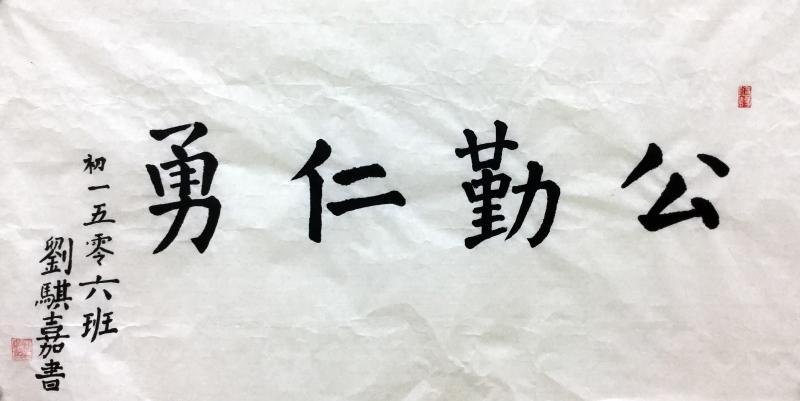 公勤仁勇
初一五零六班
劉騏嘉書